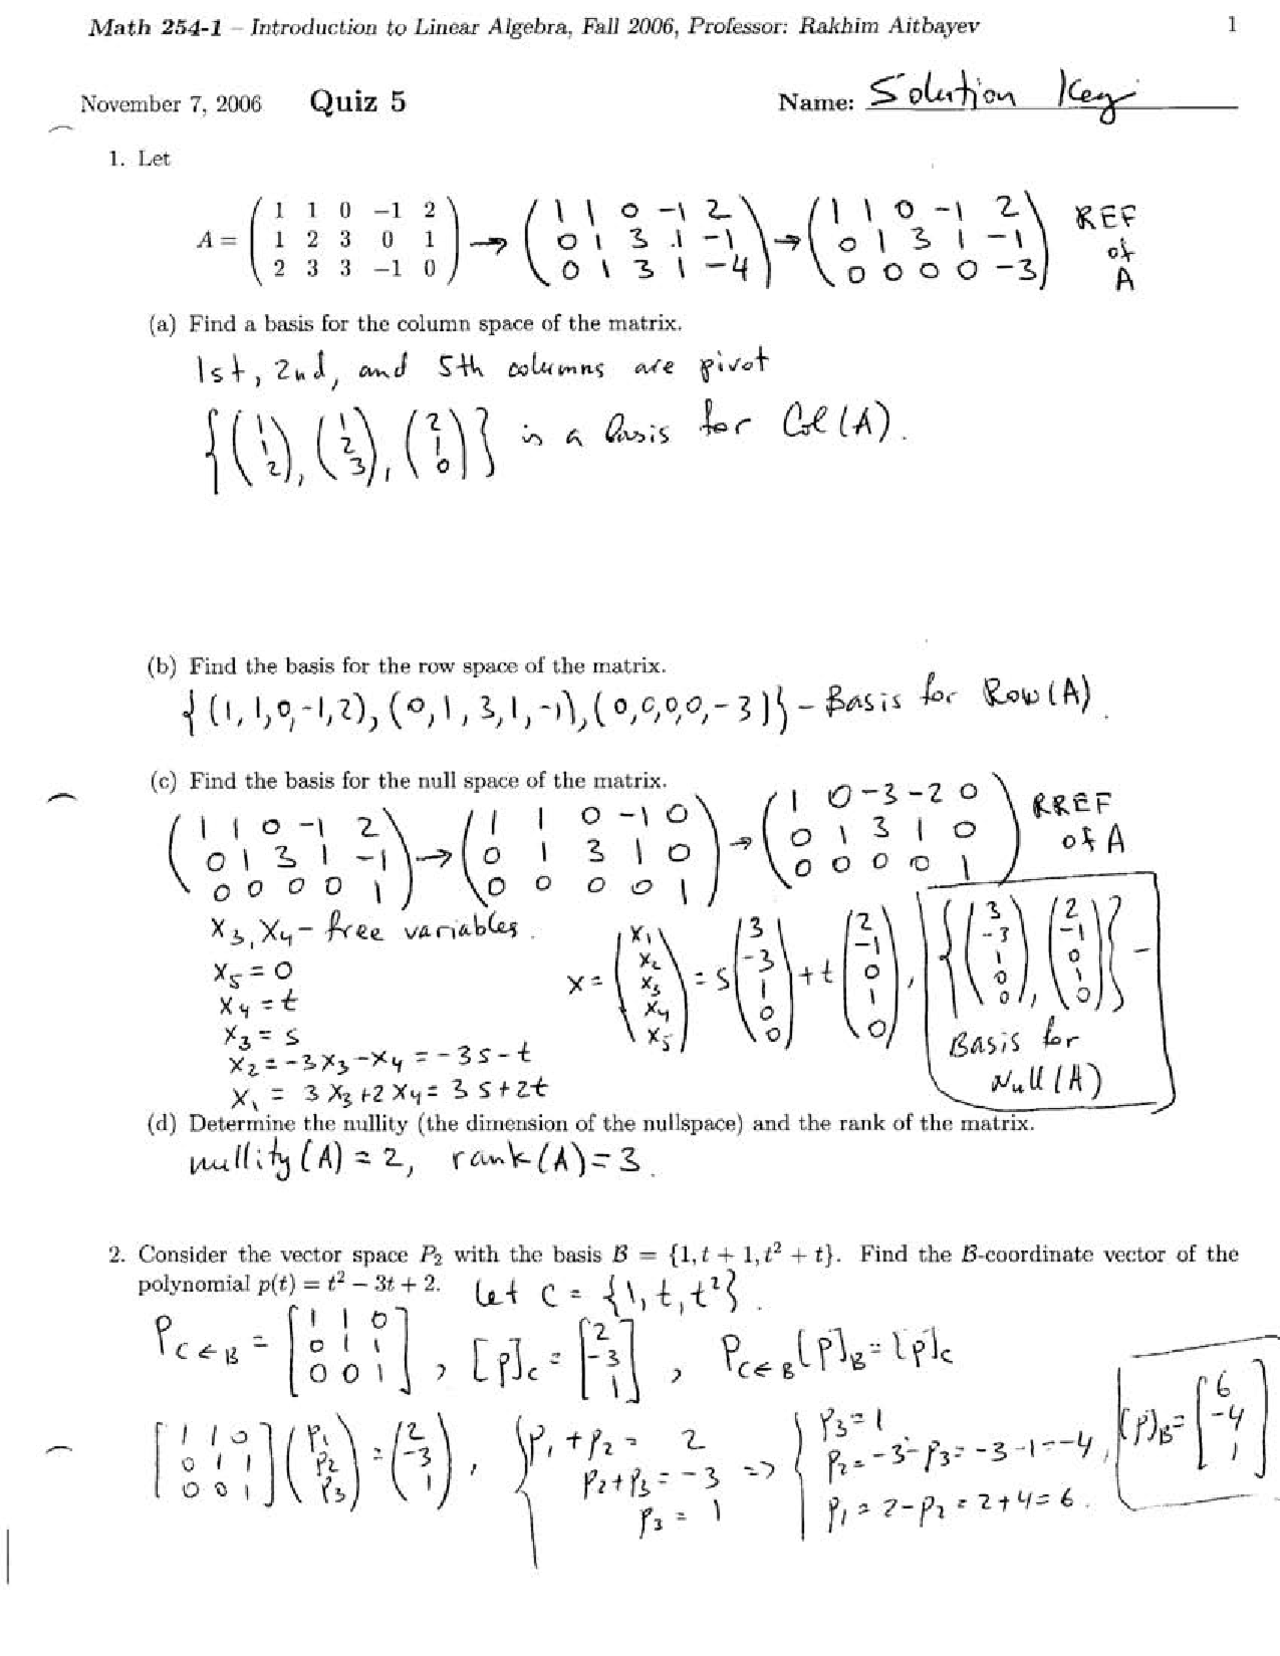 Math 254-1 – Introduction to Linear Algebra, Fall 2006, Professor: Rakhim Aitbayev 1
November 7, 2006 Quiz 5 Name: Solution Key
1. Let
A = ( 1 1 0 −1 2 ; 1 2 3 0 1 ; 2 3 3 −1 0 ) → ( 1 1 0 −1 2 ; 0 1 3 1 −1 ; 0 1 3 1 −4 ) → ( 1 1 0 −1 2 ; 0 1 3 1 −1 ; 0 0 0 0 −3 ) REF of A
(a) Find a basis for the column space of the matrix.
1st, 2nd, and 5th columns are pivot
{ ( 1 ; 1 ; 2 ), ( 1 ; 2 ; 3 ), ( 2 ; 1 ; 0 ) } is a basis for Col(A).
(b) Find the basis for the row space of the matrix.
{ (1,1,0,-1,2), (0,1,3,1,-1), (0,0,0,0,-3) } – Basis for Row(A).
(c) Find the basis for the null space of the matrix.
( 1 1 0 −1 2 ; 0 1 3 1 −1 ; 0 0 0 0 1 ) → ( 1 1 0 −1 0 ; 0 1 3 1 0 ; 0 0 0 0 1 ) → ( 1 0 −3 −2 0 ; 0 1 3 1 0 ; 0 0 0 0 1 ) RREF of A
x3, x4 – free variables.
x5 = 0
x4 = t
x3 = s
x2 = -3x3 - x4 = -3s - t
x1 = 3x3 + 2x4 = 3s + 2t
x = ( x1 ; x2 ; x3 ; x4 ; x5 ) = s ( 3 ; −3 ; 1 ; 0 ; 0 ) + t ( 2 ; −1 ; 0 ; 1 ; 0 ), { ( 3 ; −3 ; 1 ; 0 ; 0 ), ( 2 ; −1 ; 0 ; 1 ; 0 ) } –
Basis for
Null(A)
(d) Determine the nullity (the dimension of the nullspace) and the rank of the matrix.
nullity(A) = 2, rank(A) = 3.
2. Consider the vector space P2 with the basis B = {1, t + 1, t² + t}. Find the B-coordinate vector of the
polynomial p(t) = t² − 3t + 2. Let C = {1, t, t²}.
P C←B = [ 1 1 0 ; 0 1 1 ; 0 0 1 ], [p]C = [ 2 ; −3 ; 1 ], P C←B [p]B = [p]C
[ 1 1 0 ; 0 1 1 ; 0 0 1 ] ( p1 ; p2 ; p3 ) = ( 2 ; −3 ; 1 ), { p1 + p2 = 2 ; p2 + p3 = -3 ; p3 = 1 => { p3 = 1 ; p2 = -3 - p3 = -3 - 1 = -4, ; p1 = 2 - p2 = 2 + 4 = 6. [p]B = [ 6 ; −4 ; 1 ]